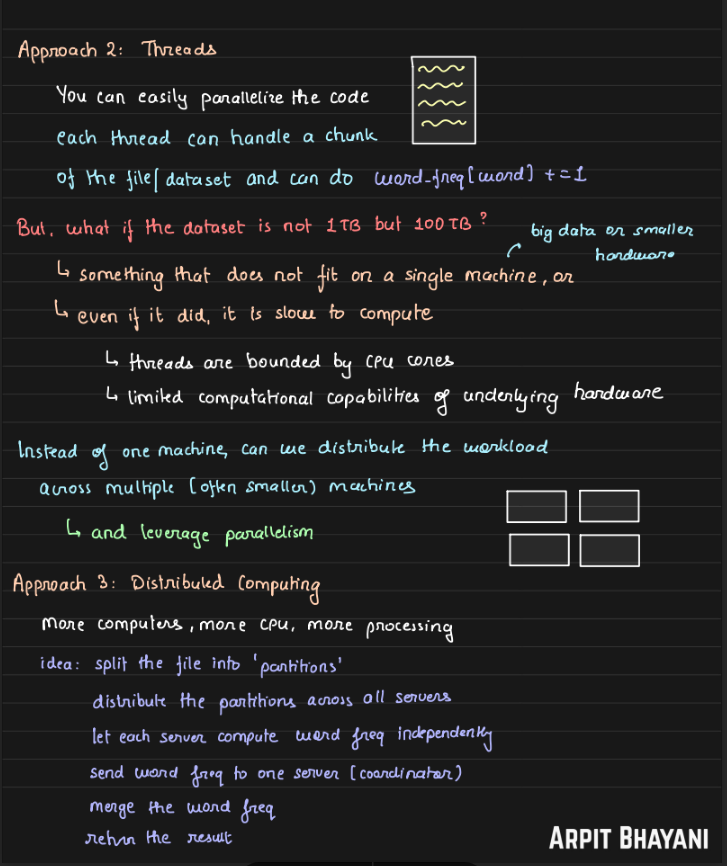 Approach 2: Threads
You can easily parallelize the code
each thread can handle a chunk
of the file/dataset and can do word-freq[word] += 1
But, what if the dataset is not 1TB but 100TB?
big data or smaller
hardware
↳ something that does not fit on a single machine, or
↳ even if it did, it is slow to compute
↳ threads are bounded by CPU cores
↳ limited computational capabilities of underlying hardware
Instead of one machine, can we distribute the workload
across multiple (often smaller) machines
↳ and leverage parallelism
Approach 3: Distributed Computing
More computers, more CPU, more processing
idea: split the file into 'partitions'
distribute the partitions across all servers
let each server compute word freq independently
send word freq to one server (coordinator)
merge the word freq
return the result
ARPIT BHAYANI